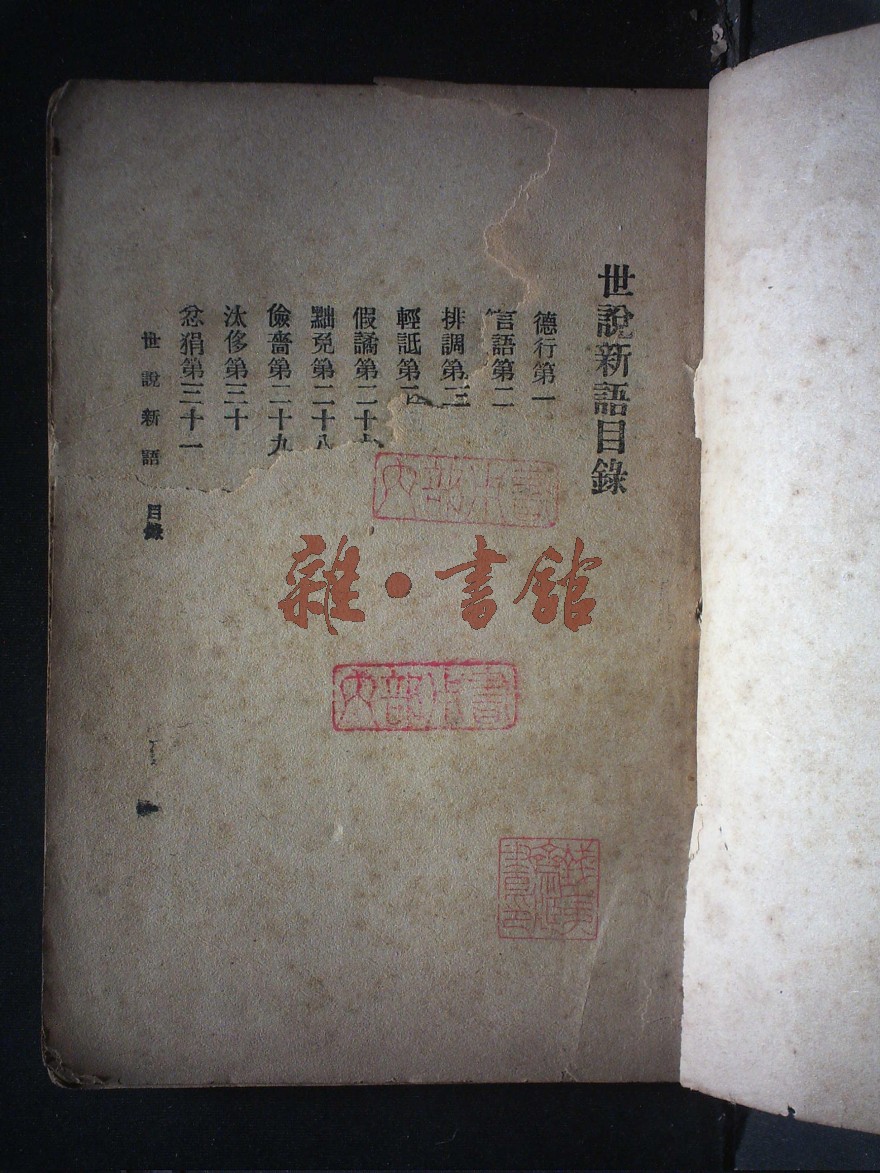 世說新語目錄
德行第一
言語第二
排調第二
輕詆第二
假譎第二十
黜免第二十八
儉嗇第二十九
汰侈第三十
忿狷第三十一
世說新語 目錄
內部 書
雜·書館
內部 書